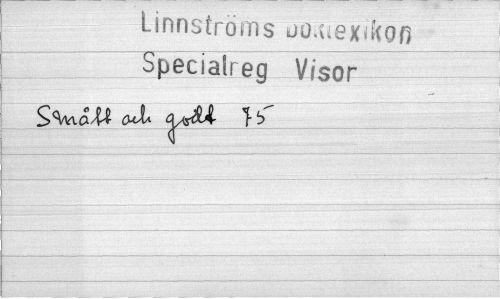 Linnströms Boklexikon
Specialreg Visor
Smått och godt 75